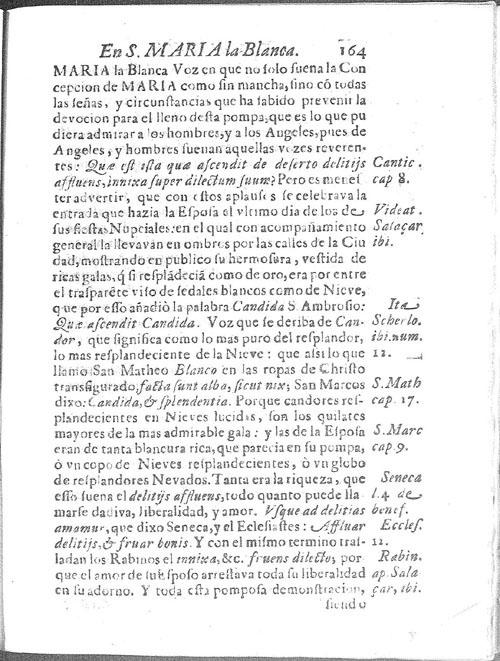 En S. MARIA la Blanca. 164
MARIA la Blanca Voz en que no ſolo ſuena la Con
cepcion de MARIA como ſin mancha, ſino cõ todas
las ſeñas, y circunſtancias que ha ſabido prevenir la
devocion para el lleno deſta pompa, que es lo que pu
diera admirar a los hombres, y a los Angeles, pues de
Angeles, y hombres ſuenan aquellas vezes reveren-
tes: Quæ eſt iſta quæ aſcendit de deſerto delitijs Cantic.
affluens, innixa ſuper dilectum ſuum? Pero es meneſ cap 8.
ter advertir, que con eſtos aplauſes ſe celebrava la
entrada que hazia la Eſpoſa el vltimo dia de los de Videat.
ſus fieſtas Nupciales: en el qual con acompañamiento Salaçar,
general la llevavan en ombres por las calles de la Ciu ibi.
dad, moſtrando en publico ſu hermoſura, veſtida de
ricas galas, q̃ ſi reſplãdeciã como de oro, era por entre
el traſparẽte viſo de ſedales blancos como de Nieve,
que por eſſo añadiò la palabra Candida S. Ambroſio: Ita
Quæ aſcendit Candida. Voz que ſe deriba de Can- Scherlo.
dor, que ſignifica como lo mas puro del reſplandor, ibi. num.
lo mas reſplandeciente de la Nieve: que aſsi lo que 12.
llamò San Matheo Blanco en las ropas de Chriſto
transfigurado, facta ſunt alba, ſicut nix; San Marcos S. Math
dixo: Candida, & ſplendentia. Porque candores reſ- cap. 17.
plandecientes en Nieves lucidas, ſon los quilates
mayores de la mas admirable gala: y las de la Eſpoſa S. Marc
eran de tanta blancura rica, que parecia en ſu pompa, cap 9.
ò vn copo de Nieves reſplandecientes, ò vn globo
de reſplandores Nevados. Tanta era la riqueza, que Seneca
eſſo ſuena el delitijs affluens, todo quanto puede lla- l. 4 de
marſe dadiva, liberalidad, y amor. Vſque ad delitias benef.
amamur, que dixo Seneca, y el Eclesiaſtes: Affluar Eccleſ.
delitijs, & fruar bonis. Y con el miſmo termino traſ- 11.
ladan los Rabinos el innixa, &c. fruens dilecto; por Rabin.
que el amor de ſu eſpoſo arreſtava toda ſu liberalidad ap. Sala
en ſu adorno. Y toda eſta pompoſa demonſtracion, çar, ibi.
ſiendo